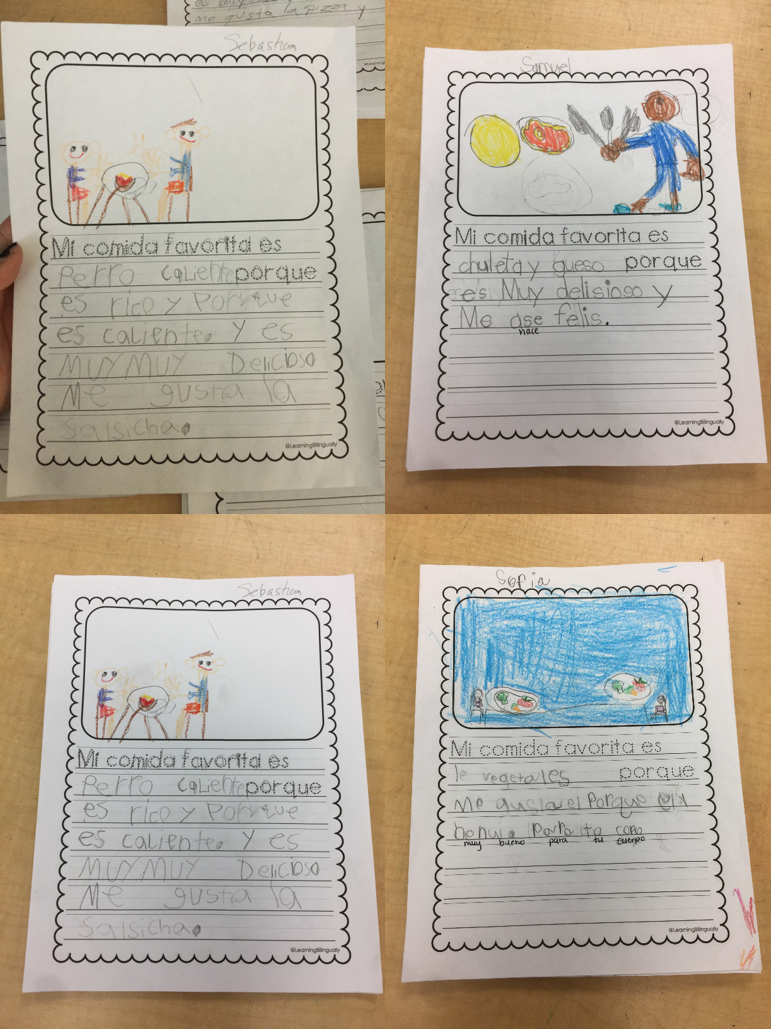 me gusta la pizza y
Sebastian
Mi comida favorita es
Perro caliente porque
es rico y Porque
es caliente. Y es
MUY MUY Delicioso
Me gusta la
Salsicha.
@LearningBilingually
Samuel
Mi comida favorita es
chuleta y queso porque
es Muy delisioso y
Me ase felis.
hace
@LearningBilingually
Sebastian
Mi comida favorita es
Perro caliente porque
es rico y Porque
es caliente. Y es
MUY MUY Delicioso
Me gusta la
Salsicha.
@LearningBilingually
Sofia
Mi comida favorita es
le vegetales porque
Me gusta el Porque
Para tu
muy bueno para tu cuerpo
@LearningBilingually